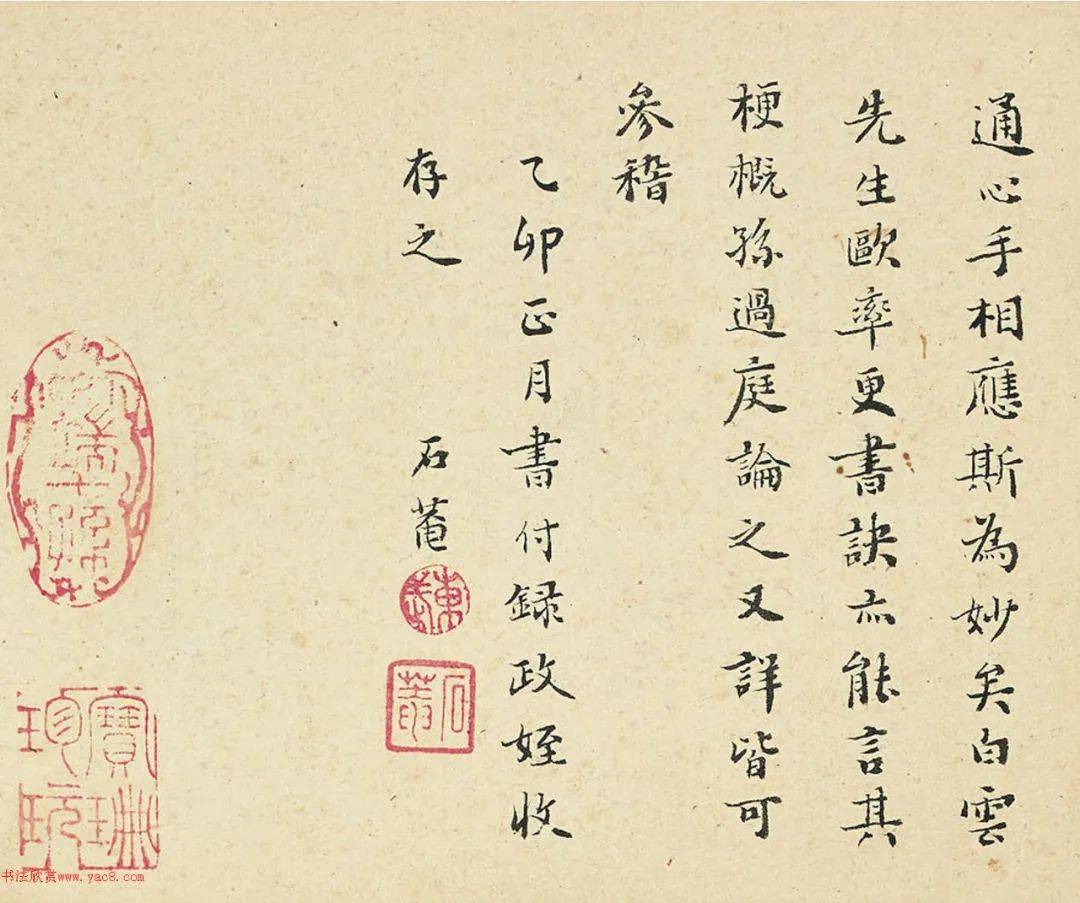 通心手相應斯為妙矣白雲
先生歐率更書訣亦能言其
梗概孫過庭論之又詳皆可
參稽
乙卯正月書付録政姪收
存之
石菴
石菴
寶琳珍玩
书法欣赏www.yac8.com